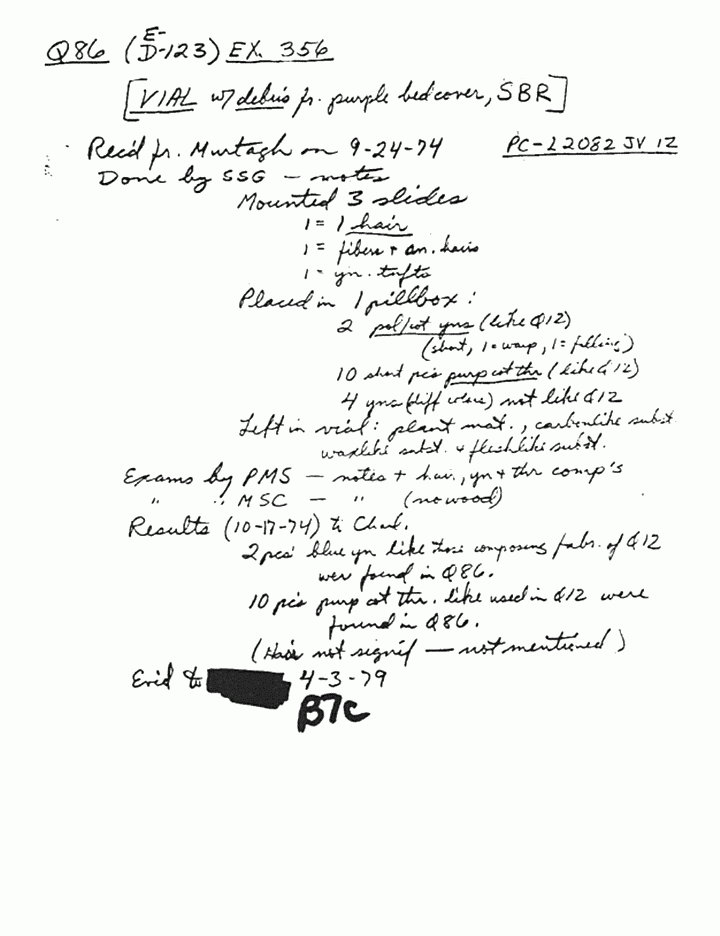 Q86 (D-123) EX. 356
E-
[VIAL w/ debris fr. purple bedcover, SBR]
Rec'd fr. Murtagh on 9-24-74 PC-L2082 JV 1Z
Done by SSG — notes
Mounted 3 slides
1 = 1 hair
1 = fibers + an. hairs
1 - yn. tufts
Placed in 1 pillbox:
2 pol/cot yns (like Q12)
(short, 1 = warp, 1 = filling)
10 short pcs purp cot thr (like Q12)
4 yns (diff colors) not like Q12
Left in vial: plant mat., carbonlike subst
waxlike subst. + fleshlike subst.
Exams by PMS — notes + hair, yn + thr comp's
" " MSC — " (no wood)
Results (10-17-74) to Charl.
2 pcs blue yn like those composing fabr. of Q12
wer found in Q86.
10 pcs purp cot thr. like used in Q12 were
found in Q86.
(Hairs not signif — not mentioned)
Evid to 4-3-79
B7C